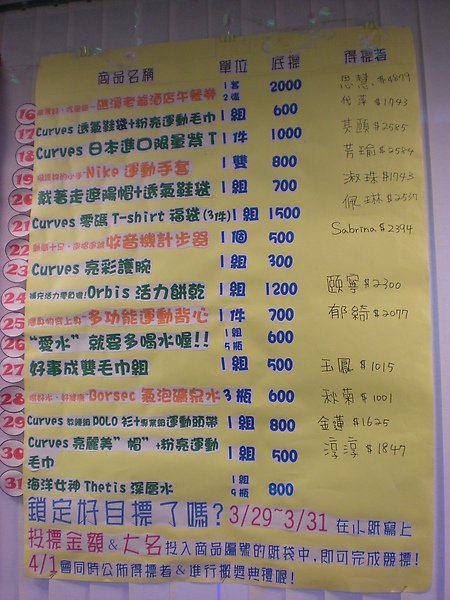 商品名稱 單位 底標 得標者
16 礁溪老爺酒店午餐券 1套 2張 2000 思慧 $4879
17 Curves 透氣鞋袋+粉亮運動毛巾 1組 600 $1743
18 Curves 日本進口限量紫T 1件 1000 英頤 $2585
19 Nike 運動手套 1雙 800 菁瑜 $2584
20 戴著走遮陽帽+透氣鞋袋 1組 700 淑珠 $1943
21 Curves 愛碼 T-shirt 福袋(3件) 1組 1500 佩琳 $2537
22 收音機計步器 1個 500 Sabrina $2394
23 Curves 亮彩護腕 1組 300
24 補充活力零負擔! Orbis 活力餅乾 1組 1200 頤寧 $2300
25 多功能運動背心 1件 700 郁綺 $2077
26 “愛水” 就要多喝水喔!! 1組 5瓶 600
27 好事成雙毛巾組 1組 500 玉鳳 $1015
28 Borsec 氣泡礦泉水 3瓶 600 秋菊 $1001
29 Curves 教練組 POLO 衫+專業級運動頭帶 1組 800 金蓮 $1625
30 Curves 亮麗美”帽”+粉亮運動毛巾 1組 500 淳淳 $1847
31 海洋女神 Thetis 深層水 1組 9瓶 800
鎖定好目標了嗎? 3/29~3/31 在小紙寫上
投標金額 & 大名 投入商品編號的紙袋中,即可完成競標!
4/1 會同時公佈得標者 & 進行搬獎典禮喔!